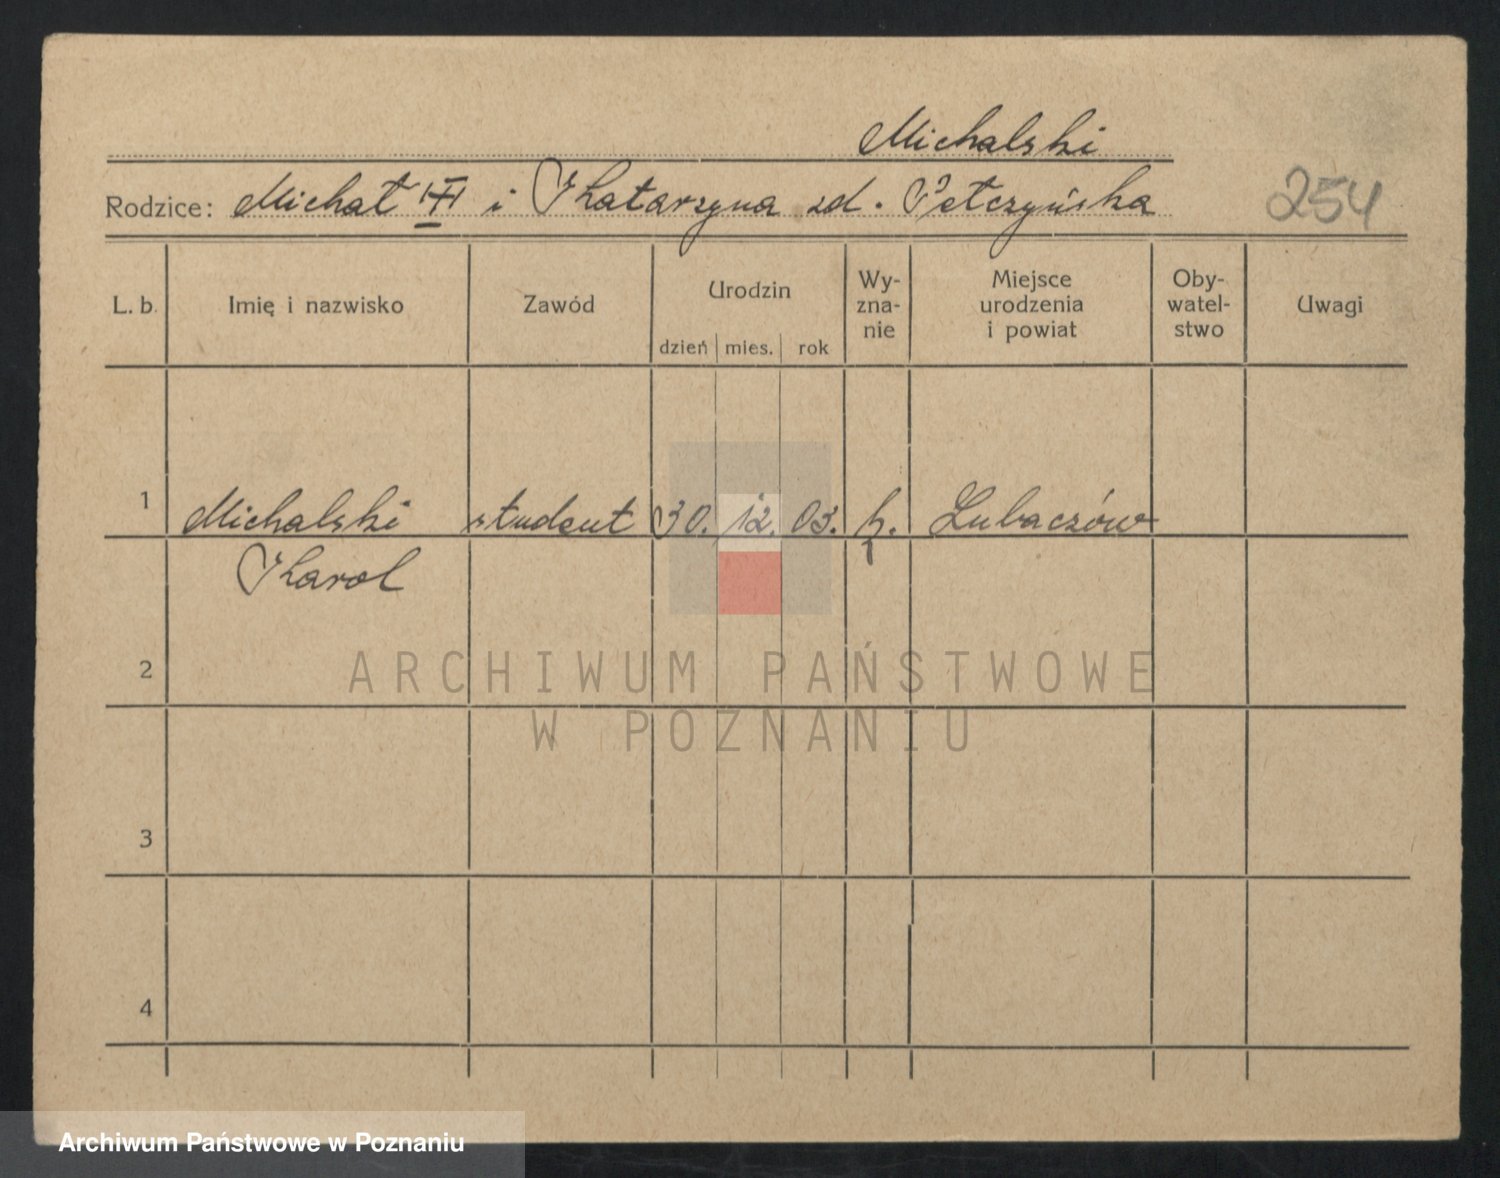 Michalski
Rodzice: Michał i Katarzyna zd. Petczyńska
254
L. b. Imię i nazwisko Zawód Urodzin dzień mies. rok Wy-zna-nie Miejsce urodzenia i powiat Oby-watel-stwo Uwagi
1 Michalski student 30. 12. 03. Lubaczów
Karol
2
3
4
ARCHIWUM PAŃSTWOWE
W POZNANIU
Archiwum Państwowe w Poznaniu